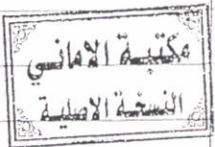 مكتبة الاماني
النسخة الاصلية